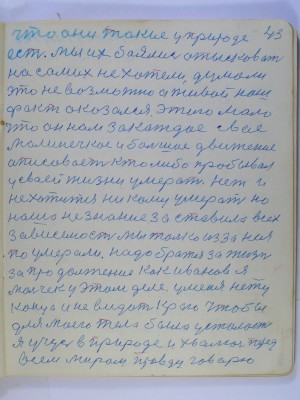 43
что они такие у природе
есть. мы их боялис отысковать
на самих не хотели, думали
это не возможно а живой наш
факт оказался. Этого мало
что он нам за каждое свое
малинечкое и болшое движение
описовает кто либо пробывал
у своей жизни умерат. Нет и
не хотится ни кому умерат но
нашо не знание заставила всех
зависемость мы толко из за ней
по умерали. надо братся за жизн
за продолжение как иванов я
молчек у этом деле умения нету
конца и не видат краю чтобы
для моего тела была усталость
Я учус в природе и хвалюс пред
всем миром правду говорю